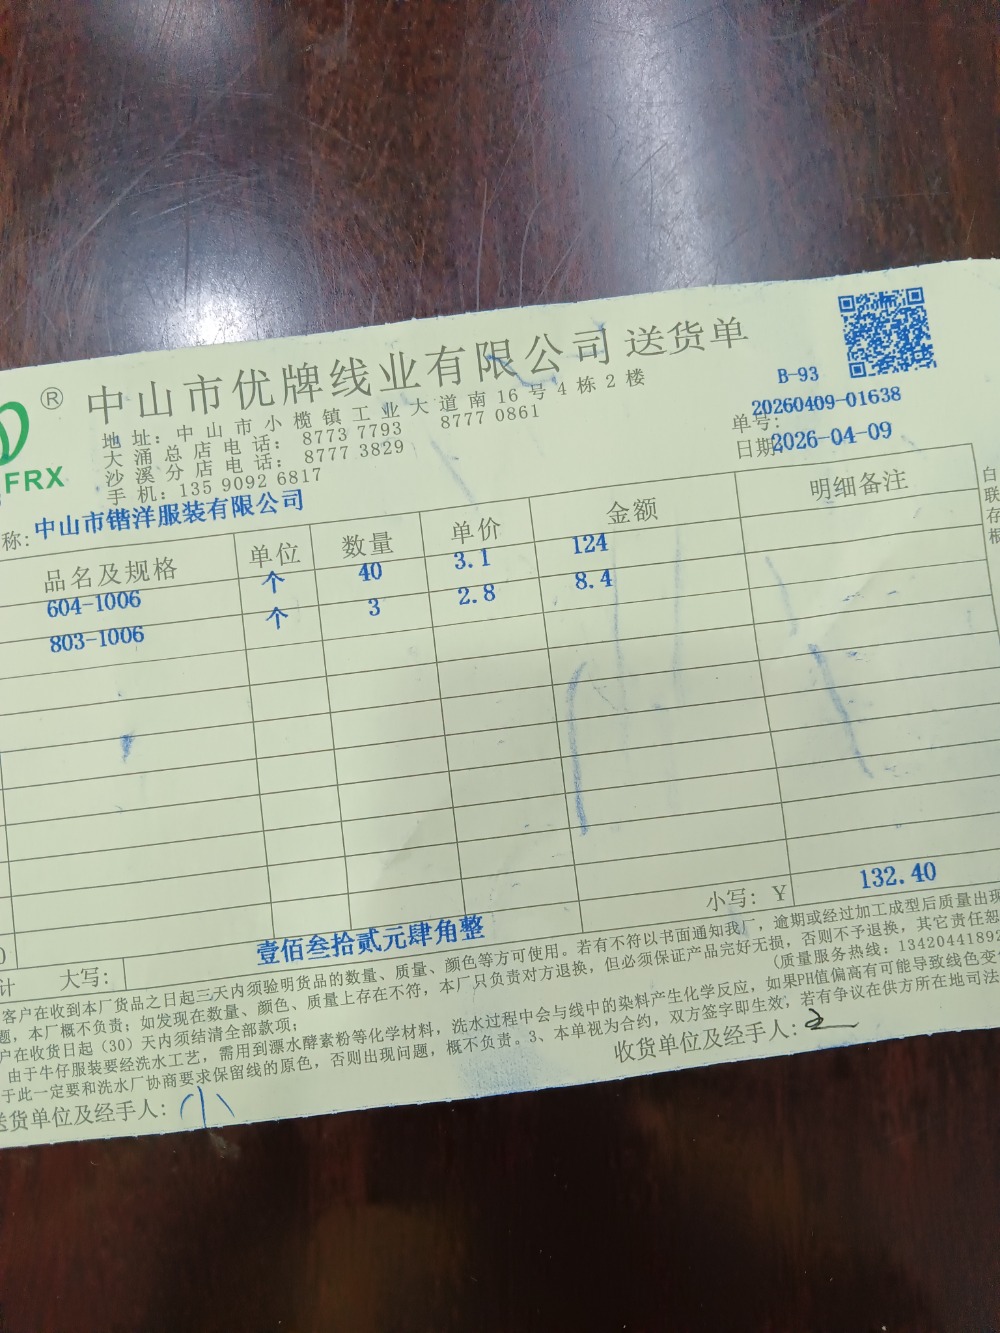 ® 中山市优牌线业有限公司 送货单
FRX
地址: 中山市小榄镇工业大道南16号4栋2楼
大涌总店电话: 8773 7793 8777 0861
沙溪分店电话: 8777 3829
手机: 135 9092 6817
B-93
单号: 20260409-01638
日期 2026-04-09
称: 中山市锴洋服装有限公司
品名及规格 单位 数量 单价 金额 明细备注
604-1006 个 40 3.1 124
803-1006 个 3 2.8 8.4
白
联
存
根
计 大写: 壹佰叁拾贰元肆角整 小写: Y 132.40
客户在收到本厂货品之日起三天内须验明货品的数量、质量、颜色等方可使用。若有不符以书面通知我厂, 逾期或经过加工成型后质量出现
题, 本厂概不负责; 如发现在数量、颜色、质量上存在不符, 本厂只负责对方退换, 但必须保证产品完好无损, 否则不予退换, 其它责任恕
户在收货日起 (30) 天内须结清全部款项; (质量服务热线: 1342044189
由于牛仔服装要经洗水工艺, 需用到漂水酵素粉等化学材料, 洗水过程中会与线中的染料产生化学反应, 如果PH值偏高有可能导致线色变
于此一定要和洗水厂协商要求保留线的原色, 否则出现问题, 概不负责。3、本单视为合约, 双方签字即生效, 若有争议在供方所在地司法
送货单位及经手人: 收货单位及经手人: